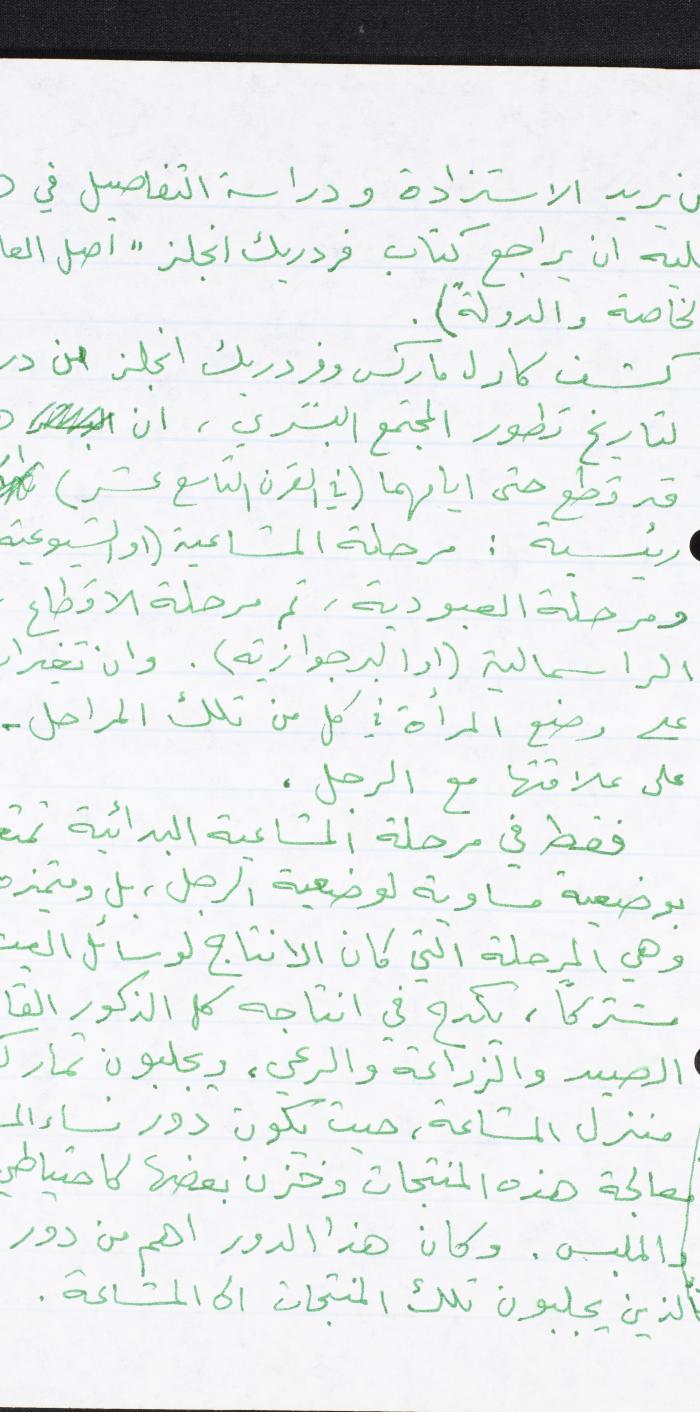 يريد الاستزادة ودراسة التفاصيل في
ان يراجع كتاب فردريك انجلز "اصل
الخاصة والدولة").
كشف كارل ماركس وفردريك انجلز من
لتاريخ تطور المجتمع البشري ، ان
قد قطع حتى ايامهما (في القرن التاسع عشر)
رئيسية : مرحلة المشاعية (او الشيوعية
ومرحلة العبودية ، ثم مرحلة الاقطاع ،
الراسمالية (او البرجوازية) . وان
على وضع المرأة في كل من تلك المراحل -
على علاقتها مع الرجل .
فقط في مرحلة المشاعية البدائية
بوضعية مساوية لوضعية الرجل ، بل
وهي المرحلة التي كان الانتاج لوسائل
مشتركاً ، يكدح في انتاجه كل الذكور
الصيد والزراعة والرعي ، ويجلبون
منزل المشاعة ، حيث يكون دور نساء
معالجة هذه المنتجات وخزن بعضها كاحتياطي
والملبس . وكان هذا الدور اهم من دور
الذين يجلبون تلك المنتجات الى المشاعة .